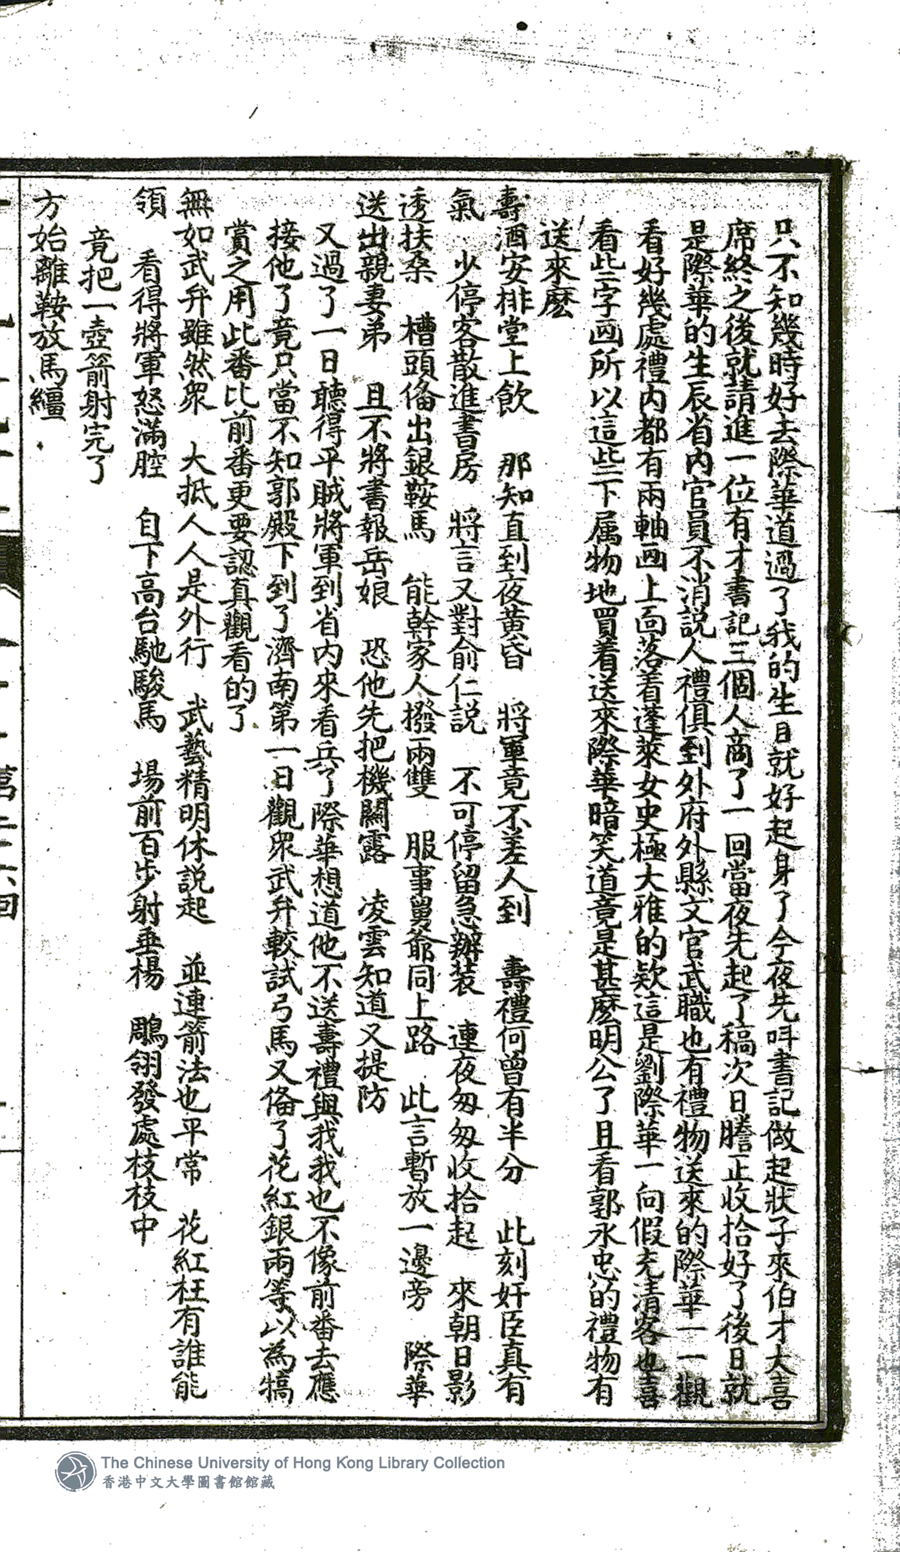 只不知幾時好去際華道過了我的生日就好起身了今夜先呌書記做起狀子來伯才大喜
席終之後就請進一位有才書記三個人商了一回當夜先起了稿次日謄正收拾好了後日就
是際華的生辰省內官員不消說人禮俱到外府外縣文官武職也有禮物送來的際華一一觀
看好幾處禮內都有兩軸画上面落着蓬萊女史極大雅的欵這是劉際華一向假充清客也喜
看些字画所以這些下属物地買着送來際華暗笑道竟是甚麽明公了且看郭永忠的禮物有
送來麽
壽酒安排堂上飲　那知直到夜黄昏　將軍竟不差人到　壽禮何曾有半分　此刻奸臣真有
氣　少停客散進書房　將言又對俞仁説　不可停留急辦装　連夜匆匆收拾起　來朝日影
透扶桑　槽頭俻出銀鞍馬　能幹家人撥兩雙　服事舅爺同上路　此言暫放一邊旁　際華
送出親妻弟　且不將書報岳娘　恐他先把機關露　凌雲知道又提防
又過了一日聽得平賊將軍到省内來看兵了際華想道他不送壽禮與我我也不像前番去應
接他了竟只當不知郭殿下到了濟南第一日觀眾武弁較試弓馬又俻了花紅銀兩等以為犒
賞之用此番比前番更要認真觀看的了
無如武弁雖然眾　大抵人人是外行　武藝精明休説起　並連箭法也平常　花紅枉有誰能
領　看得將軍怒滿腔　自下高台馳駿馬　場前百步射垂楊　鵰翎發處枝枝中
竟把一壺箭射完了
方始離鞍放馬繮．
第二六回
The Chinese University of Hong Kong Library Collection
香港中文大學圖書館館藏